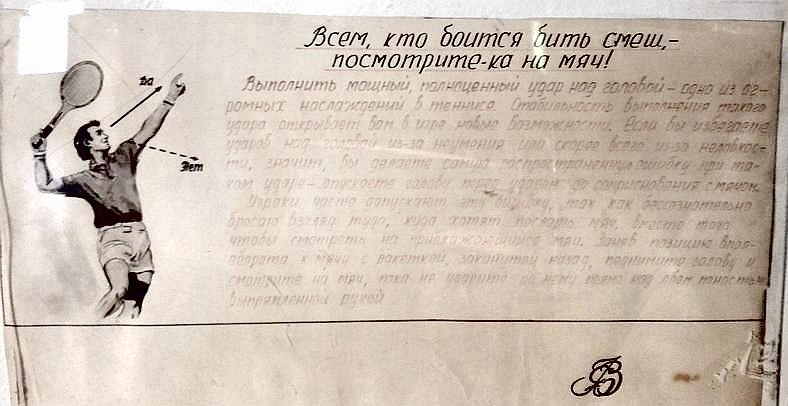 Всем, кто боится бить смеш,-
посмотрите-ка на мяч!
Да
Нет
Выполнить мощный, полноценный удар над головой - одно из ог-
ромных наслаждений в теннисе. Стабильность выполнения такого
удара открывает вам в игре новые возможности. Если вы избегаете
ударов над головой из-за неумения или скорее всего из-за неловкос-
ти, значит, вы делаете самую распространенную ошибку при та-
ком ударе - опускаете голову перед ударом, до соприкосновения с мячом.
Игроки часто допускают эту ошибку, так как бессознательно
бросают взгляд туда, куда хотят послать мяч, вместо того
чтобы смотреть на приближающийся мяч. Заняв позицию впол-
оборота к мячу с ракеткой, закинутой назад, поднимите голову и
смотрите на мяч, пока не ударите по нему прямо над
выпрямленной рукой